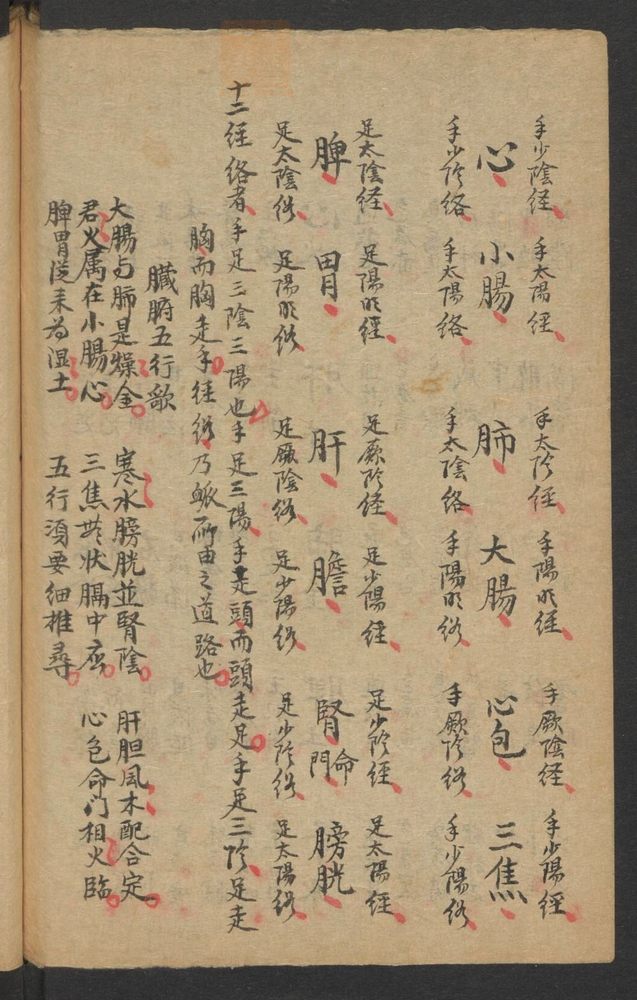 手少陰经 手太陽经 手太阴经 手陽明经 手厥陰经 手少陽经
心 小腸 肺 大腸 心包 三焦
手少阴络 手太陽络 手太陰络 手陽明络 手厥阴络 手少陽络
足太陰经 足陽明經 足厥阴经 足少陽经 足少阴經 足太陽经
脾 胃 肝 膽 腎 命門 膀胱
足太陰络 足陽明络 足厥陰络 足少陽络 足少阴络 足太陽络
十二经络者手足三陰三陽也手足三陽手走頭而頭走足手足三阴足走
胸而胸走手经络乃脈所由之道路也
臟腑五行歌
大腸与肺是燥金 寒水膀胱並腎陰 肝胆风木配合定
君火属在小腸心 三焦 状膈中 心包命门相火臨
脾胃従来為湿土 五行須要細推尋